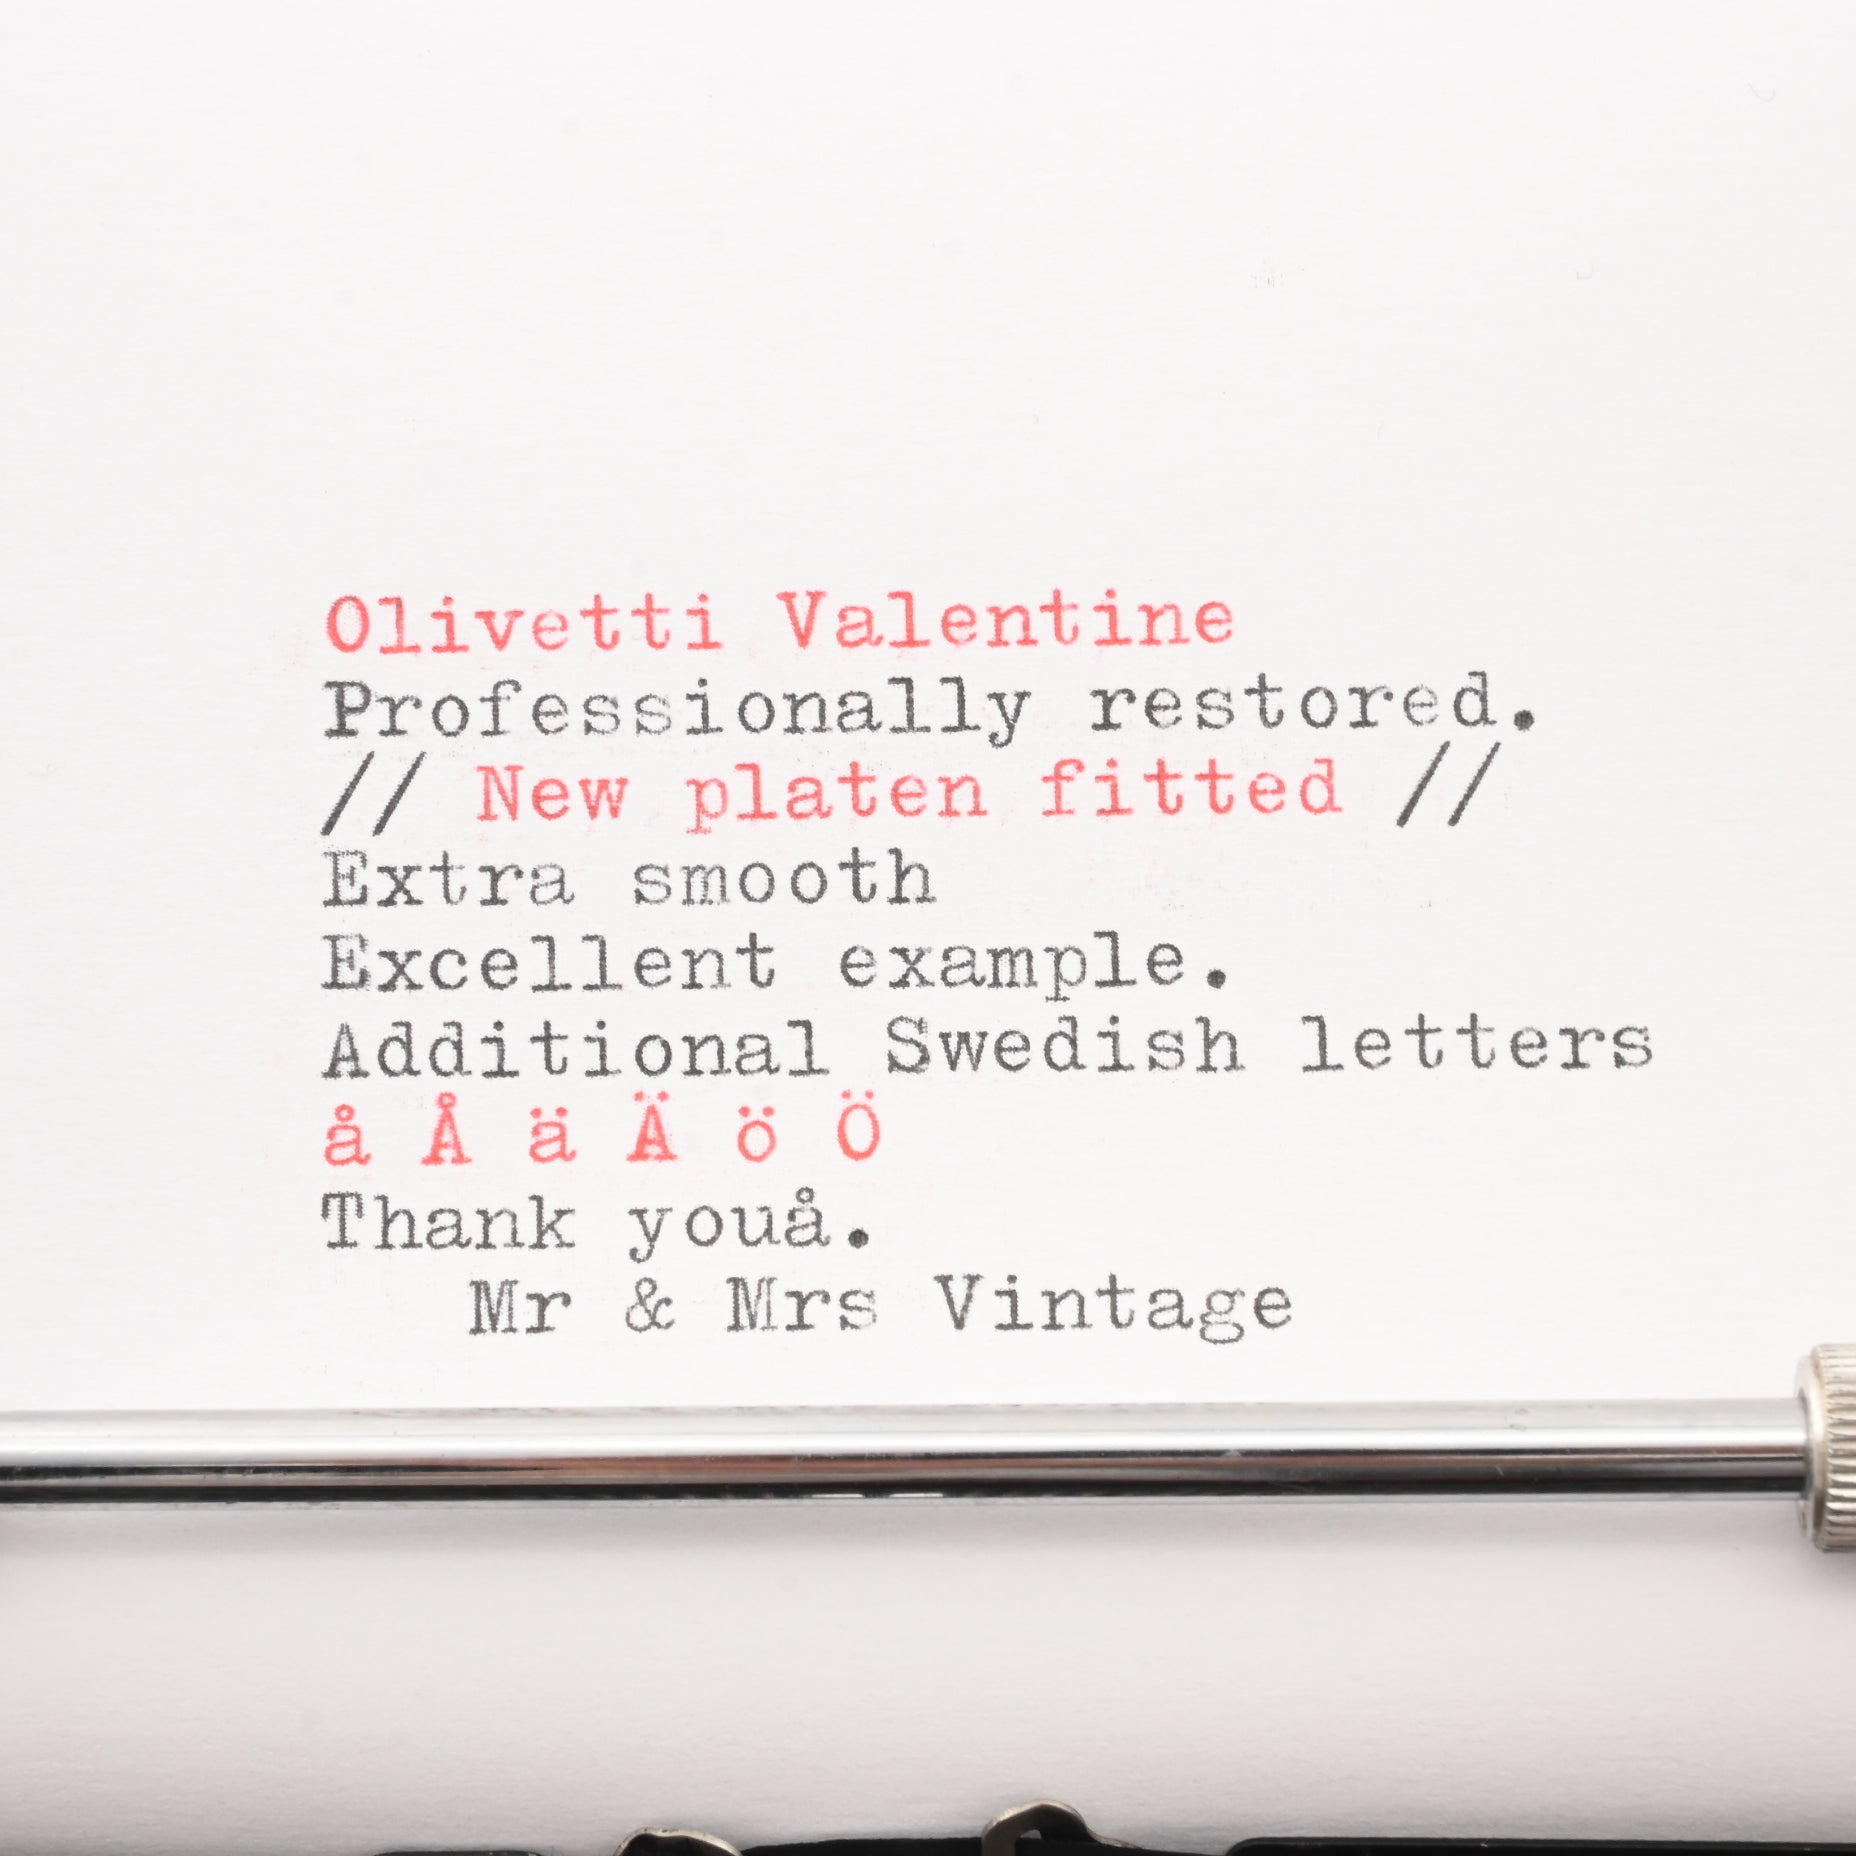 Olivetti Valentine
Professionally restored.
// New platen fitted //
Extra smooth
Excellent example.
Additional Swedish letters
å Å ä Ä ö Ö
Thank youå.
Mr & Mrs Vintage